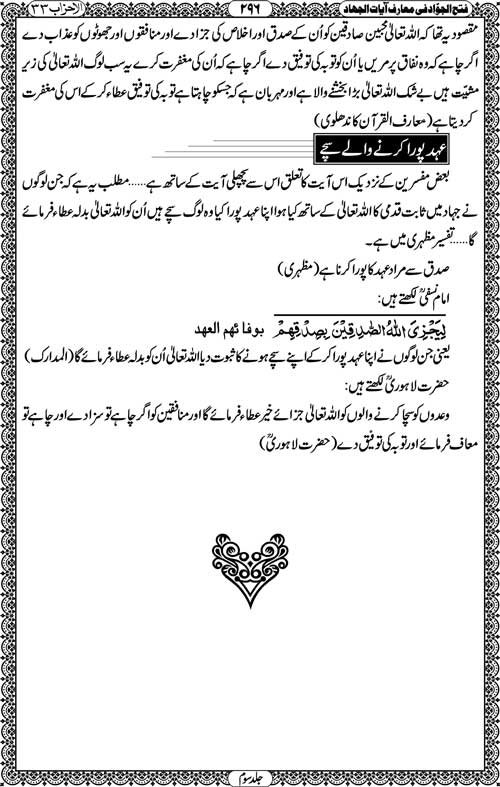 فتح الجوّاد فی معارف آیات الجهاد
۲۹۶
الاحزاب ۳۳
مقصود یہ تھا کہ اللہ تعالیٰ محبین صادقین کو اُن کے صدق اور اخلاص کی جزا دے اور منافقوں اور جھوٹوں کو عذاب دے
اگر چاہے کہ وہ نفاق پر مریں یا اُن کو توبہ کی توفیق دے اگر چاہے کہ اُن کی مغفرت کرے یہ سب لوگ اللہ تعالیٰ کی زیر
مشیّت ہیں بے شک اللہ تعالیٰ بڑا بخشنے والا ہے اور مہربان ہے کہ جسکو چاہتا ہے توبہ کی توفیق عطاء کر کے اس کی مغفرت
کر دیتا ہے (معارف القرآن کاندھلوی)
عہد پورا کرنے والے سچے
بعض مفسرین کے نزدیک اس آیت کا تعلق اس سے پچھلی آیت کے ساتھ ہے...... مطلب یہ ہے کہ جن لوگوں
نے جہاد میں ثابت قدمی کا اللہ تعالیٰ کے ساتھ کیا ہوا اپنا عہد پورا کیا وہ لوگ سچے ہیں اُن کو اللہ تعالیٰ بدلہ عطاء فرمائے
گا...... تفسیر مظہری میں ہے۔
صدق سے مراد عہد کا پورا کرنا ہے (مظہری)
امام نسفیؒ لکھتے ہیں:
لِيَجْزِيَ اللّٰهُ الصّٰدِقِيْنَ بِصِدْقِهِمْ بوفائهم العهد
یعنی جن لوگوں نے اپنا عہد پورا کر کے اپنے سچے ہونے کا ثبوت دیا اللہ تعالیٰ اُن کو بدلہ عطاء فرمائے گا (المدارک)
حضرت لاہوریؒ لکھتے ہیں:
وعدوں کو سچا کرنے والوں کو اللہ تعالیٰ جزائے خیر عطاء فرمائے گا اور منافقین کو اگر چاہے تو سزا دے اور چاہے تو
معاف فرمائے اور توبہ کی توفیق دے (حضرت لاہوریؒ)
جلد سوم